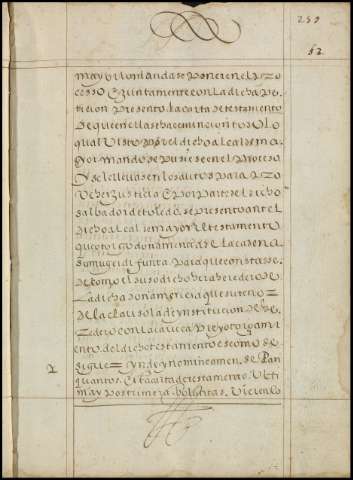 259
52
mayor lo mandase poner en el pro
ceso E Juntamente con la dicha pe
ticion presento la carta de testamento
de que en ella se hace mincion todo lo
qual visto por el dicho alcalde ma
yor mando se pusiese en el proceso
y se lleven los autos para pro
veher justicia E por parte del dicho
salbador de toledo se presento ante el
dicho alcalde mayor el testamento
que otorgo doña mencia de la cadena
su muger difunta para que constase
de como el susodicho hera heredero de
la dicha doña mencia que su teno
de la clausola de ynstitucion de he
redero con la caveca pie y otorgami
ento del dicho testamento es como se
sigue yn dey nomine amen. sepan
quantos esta carta de testamento Ulti
ma y postrimera boluntad. Vieren lo